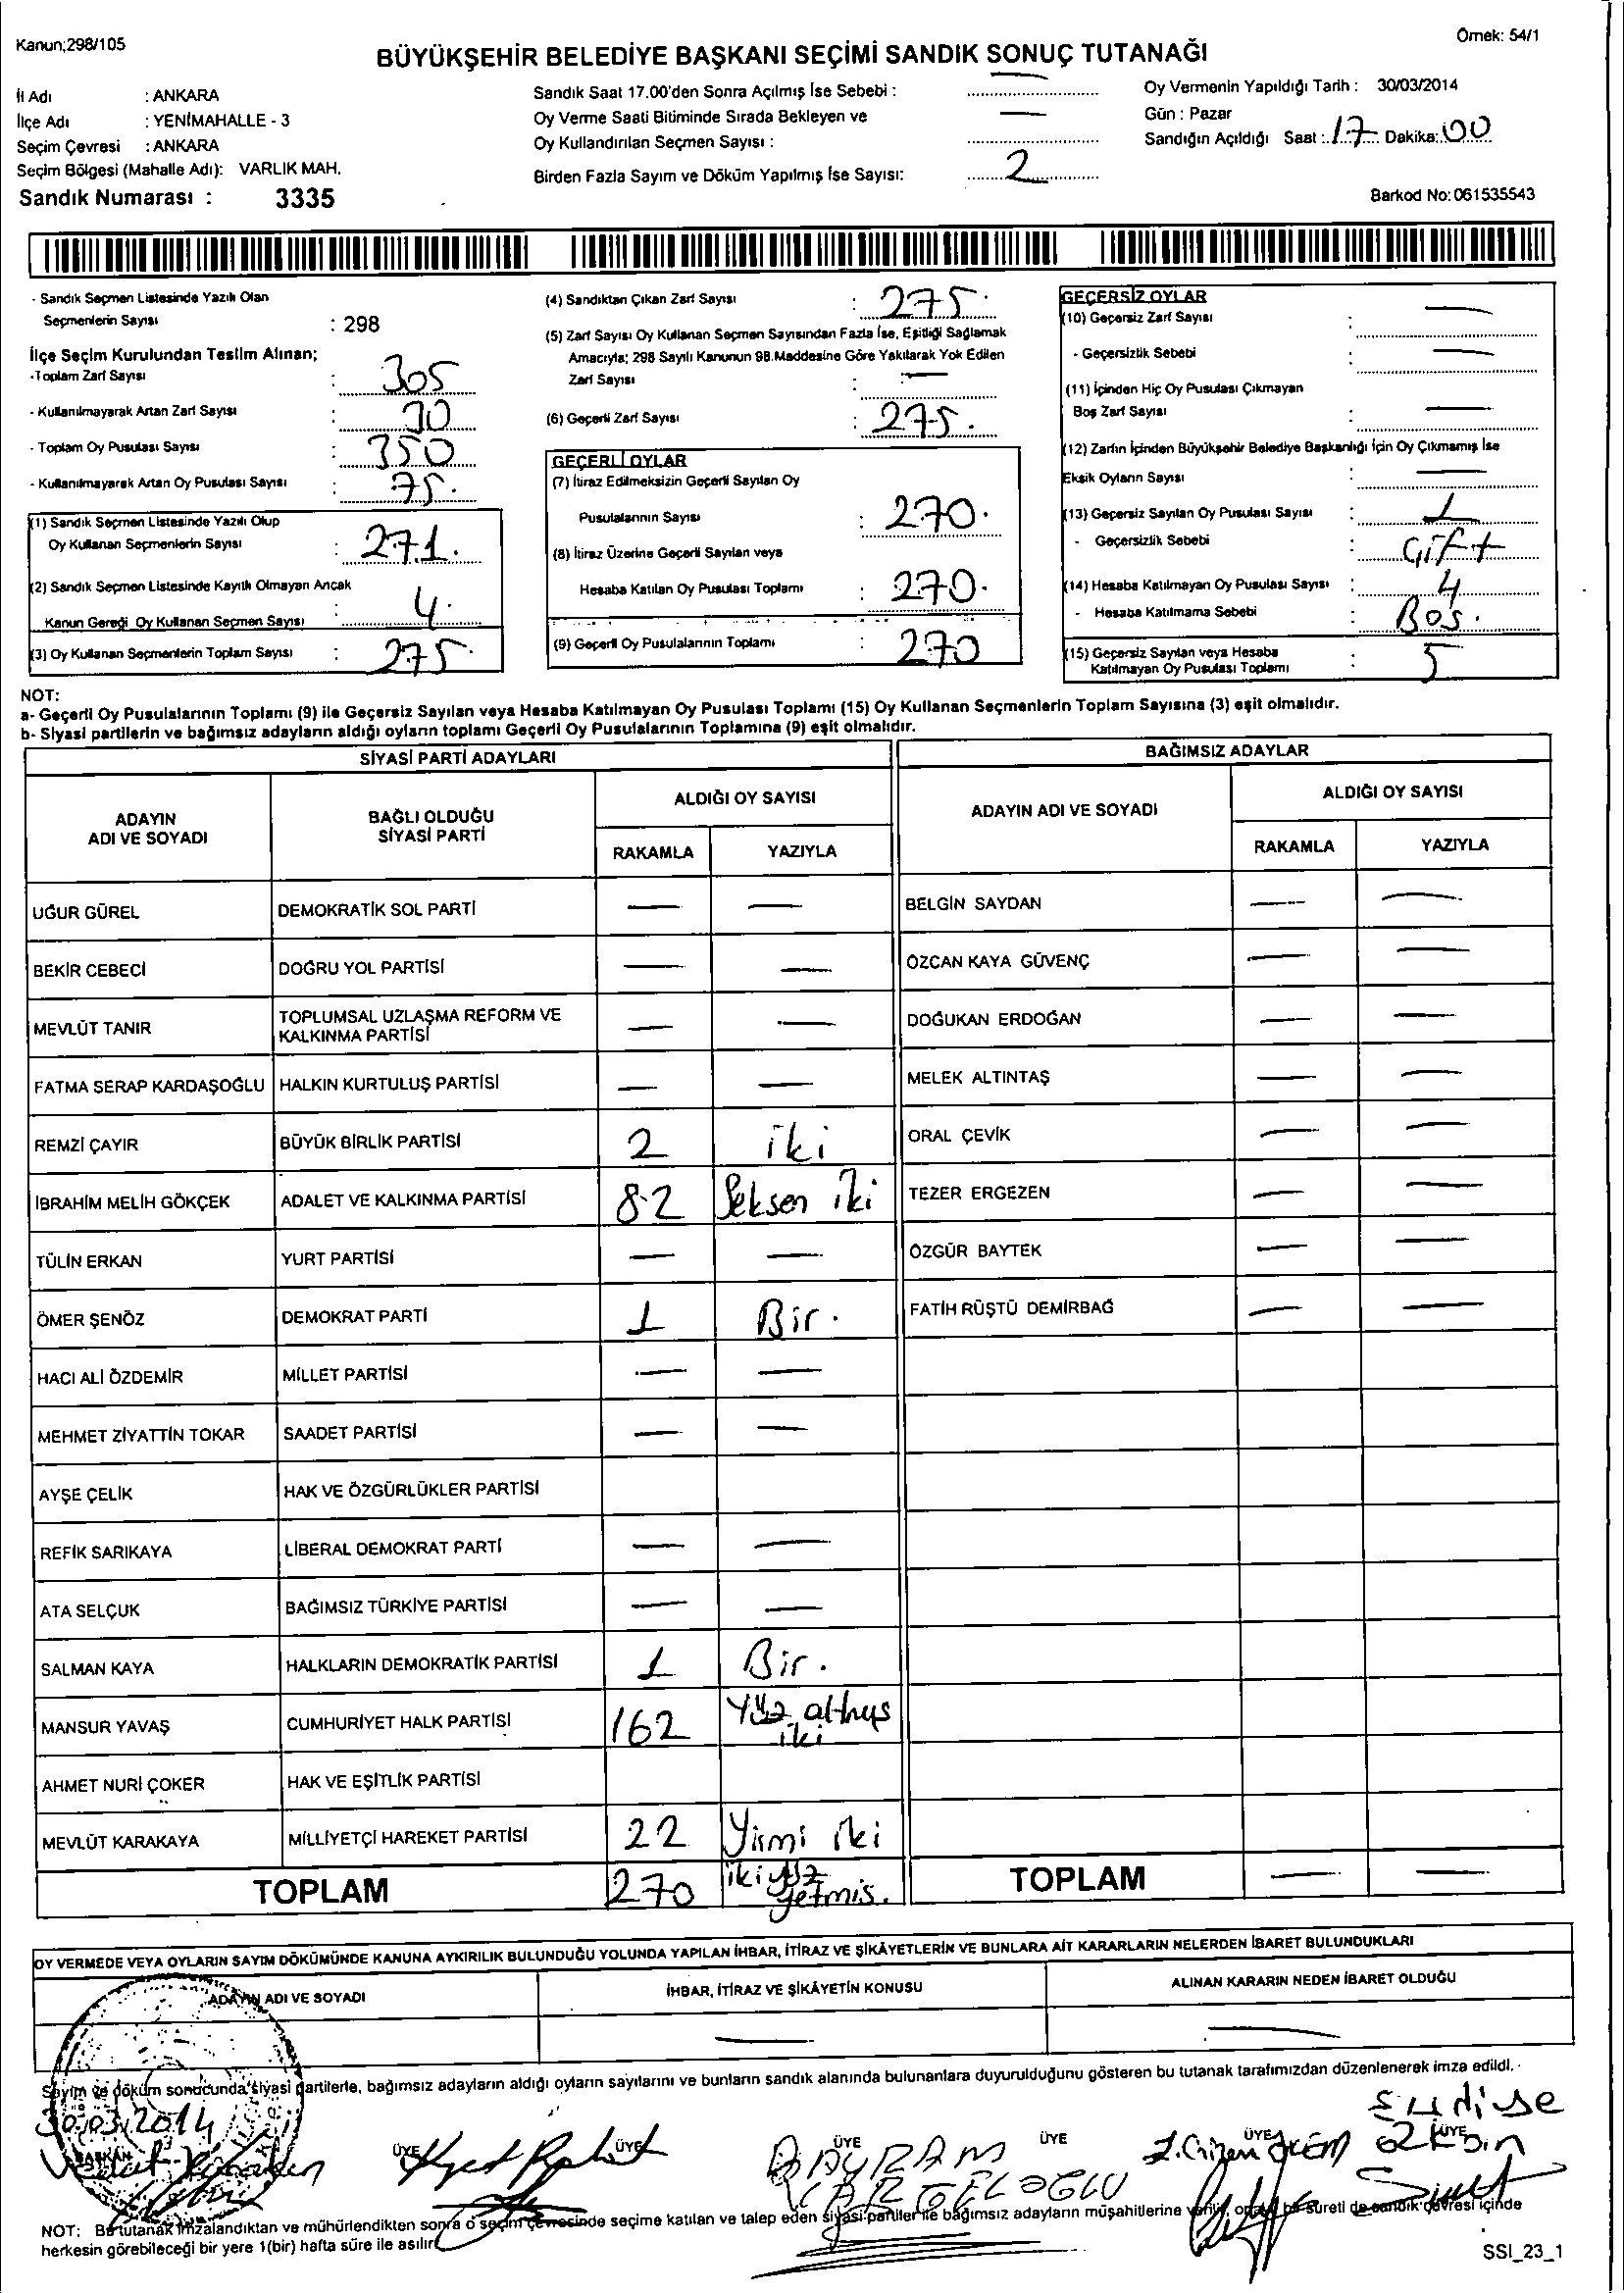 Kanun;298/105
Örnek: 54/1
BÜYÜKŞEHİR BELEDİYE BAŞKANI SEÇİMİ SANDIK SONUÇ TUTANAĞI
İl Adı : ANKARA
İlçe Adı : YENİMAHALLE - 3
Seçim Çevresi : ANKARA
Seçim Bölgesi (Mahalle Adı): VARLIK MAH.
Sandık Numarası : 3335
Sandık Saat 17.00'den Sonra Açılmış İse Sebebi : —
Oy Verme Saati Bitiminde Sırada Bekleyen ve —
Oy Kullandırılan Seçmen Sayısı :
Birden Fazla Sayım ve Döküm Yapılmış İse Sayısı: 2
Oy Vermenin Yapıldığı Tarih : 30/03/2014
Gün : Pazar
Sandığın Açıldığı Saat : 17 Dakika: 00
Barkod No: 061535543
- Sandık Seçmen Listesinde Yazılı Olan
Seçmenlerin Sayısı : 298
İlçe Seçim Kurulundan Teslim Alınan;
-Toplam Zarf Sayısı : 305
- Kullanılmayarak Artan Zarf Sayısı : 30
- Toplam Oy Pusulası Sayısı : 350
- Kullanılmayarak Artan Oy Pusulası Sayısı : 75.
(1) Sandık Seçmen Listesinde Yazılı Olup
Oy Kullanan Seçmenlerin Sayısı : 271.
(2) Sandık Seçmen Listesinde Kayıtlı Olmayan Ancak
Kanun Gereği Oy Kullanan Seçmen Sayısı : 4.
(3) Oy Kullanan Seçmenlerin Toplam Sayısı : 275
(4) Sandıktan Çıkan Zarf Sayısı : 275.
(5) Zarf Sayısı Oy Kullanan Seçmen Sayısından Fazla İse, Eşitliği Sağlamak
Amacıyla; 298 Sayılı Kanunun 98.Maddesine Göre Yakılarak Yok Edilen
Zarf Sayısı : —
(6) Geçerli Zarf Sayısı : 275.
GEÇERLİ OYLAR
(7) İtiraz Edilmeksizin Geçerli Sayılan Oy
Pusulalarının Sayısı : 270.
(8) İtiraz Üzerine Geçerli Sayılan veya
Hesaba Katılan Oy Pusulası Toplamı : 270.
(9) Geçerli Oy Pusulalarının Toplamı : 270
GEÇERSİZ OYLAR
(10) Geçersiz Zarf Sayısı : —
- Geçersizlik Sebebi : —
(11) İçinden Hiç Oy Pusulası Çıkmayan
Boş Zarf Sayısı : —
(12) Zarfın İçinden Büyükşehir Belediye Başkanlığı İçin Oy Çıkmamış İse
Eksik Oyların Sayısı : —
(13) Geçersiz Sayılan Oy Pusulası Sayısı : 1
- Geçersizlik Sebebi : Çift
(14) Hesaba Katılmayan Oy Pusulası Sayısı : 4
- Hesaba Katılmama Sebebi : Boş.
(15) Geçersiz Sayılan veya Hesaba
Katılmayan Oy Pusulası Toplamı : 5
NOT:
a- Geçerli Oy Pusulalarının Toplamı (9) ile Geçersiz Sayılan veya Hesaba Katılmayan Oy Pusulası Toplamı (15) Oy Kullanan Seçmenlerin Toplam Sayısına (3) eşit olmalıdır.
b- Siyasi partilerin ve bağımsız adayların aldığı oyların toplamı Geçerli Oy Pusulalarının Toplamına (9) eşit olmalıdır.
SİYASİ PARTİ ADAYLARI
ADAYIN ADI VE SOYADI BAĞLI OLDUĞU SİYASİ PARTİ ALDIĞI OY SAYISI
RAKAMLA YAZIYLA
UĞUR GÜREL DEMOKRATİK SOL PARTİ — —
BEKİR CEBECİ DOĞRU YOL PARTİSİ — —
MEVLÜT TANIR TOPLUMSAL UZLAŞMA REFORM VE KALKINMA PARTİSİ — —
FATMA SERAP KARDAŞOĞLU HALKIN KURTULUŞ PARTİSİ — —
REMZİ ÇAYIR BÜYÜK BİRLİK PARTİSİ 2 iki
İBRAHİM MELİH GÖKÇEK ADALET VE KALKINMA PARTİSİ 82 Seksen iki
TÜLİN ERKAN YURT PARTİSİ — —
ÖMER ŞENÖZ DEMOKRAT PARTİ 1 Bir.
HACI ALİ ÖZDEMİR MİLLET PARTİSİ — —
MEHMET ZİYATTİN TOKAR SAADET PARTİSİ — —
AYŞE ÇELİK HAK VE ÖZGÜRLÜKLER PARTİSİ
REFİK SARIKAYA LİBERAL DEMOKRAT PARTİ — —
ATA SELÇUK BAĞIMSIZ TÜRKİYE PARTİSİ — —
SALMAN KAYA HALKLARIN DEMOKRATİK PARTİSİ 1 Bir.
MANSUR YAVAŞ CUMHURİYET HALK PARTİSİ 162 Yüz altmış iki
AHMET NURİ ÇOKER HAK VE EŞİTLİK PARTİSİ
MEVLÜT KARAKAYA MİLLİYETÇİ HAREKET PARTİSİ 22 Yirmi iki
TOPLAM 270 ikiyüz yetmiş.
BAĞIMSIZ ADAYLAR
ADAYIN ADI VE SOYADI ALDIĞI OY SAYISI
RAKAMLA YAZIYLA
BELGİN SAYDAN — —
ÖZCAN KAYA GÜVENÇ — —
DOĞUKAN ERDOĞAN — —
MELEK ALTINTAŞ — —
ORAL ÇEVİK — —
TEZER ERGEZEN — —
ÖZGÜR BAYTEK — —
FATİH RÜŞTÜ DEMİRBAĞ — —
TOPLAM — —
OY VERMEDE VEYA OYLARIN SAYIM DÖKÜMÜNDE KANUNA AYKIRILIK BULUNDUĞU YOLUNDA YAPILAN İHBAR, İTİRAZ VE ŞİKÂYETLERİN VE BUNLARA AİT KARARLARIN NELERDEN İBARET BULUNDUKLARI
ADAYIN ADI VE SOYADI İHBAR, İTİRAZ VE ŞİKÂYETİN KONUSU ALINAN KARARIN NEDEN İBARET OLDUĞU
— —
Sayım ve döküm sonucunda siyasi partilerle, bağımsız adayların aldığı oyların sayılarını ve bunların sandık alanında bulunanlara duyurulduğunu gösteren bu tutanak tarafımızdan düzenlenerek imza edildi.
30.03.2014
BAŞKAN ÜYE ÜYE ÜYE ÜYE ÜYE ÜYE
Vedat
BAYRAM
NOT: Bu tutanak imzalandıktan ve mühürlendikten sonra o seçim çevresinde seçime katılan ve talep eden siyasi partiler ile bağımsız adayların müşahitlerine verilir, onaylı bir sureti de sandık çevresi içinde
herkesin görebileceği bir yere 1(bir) hafta süre ile asılır.
SSI_23_1